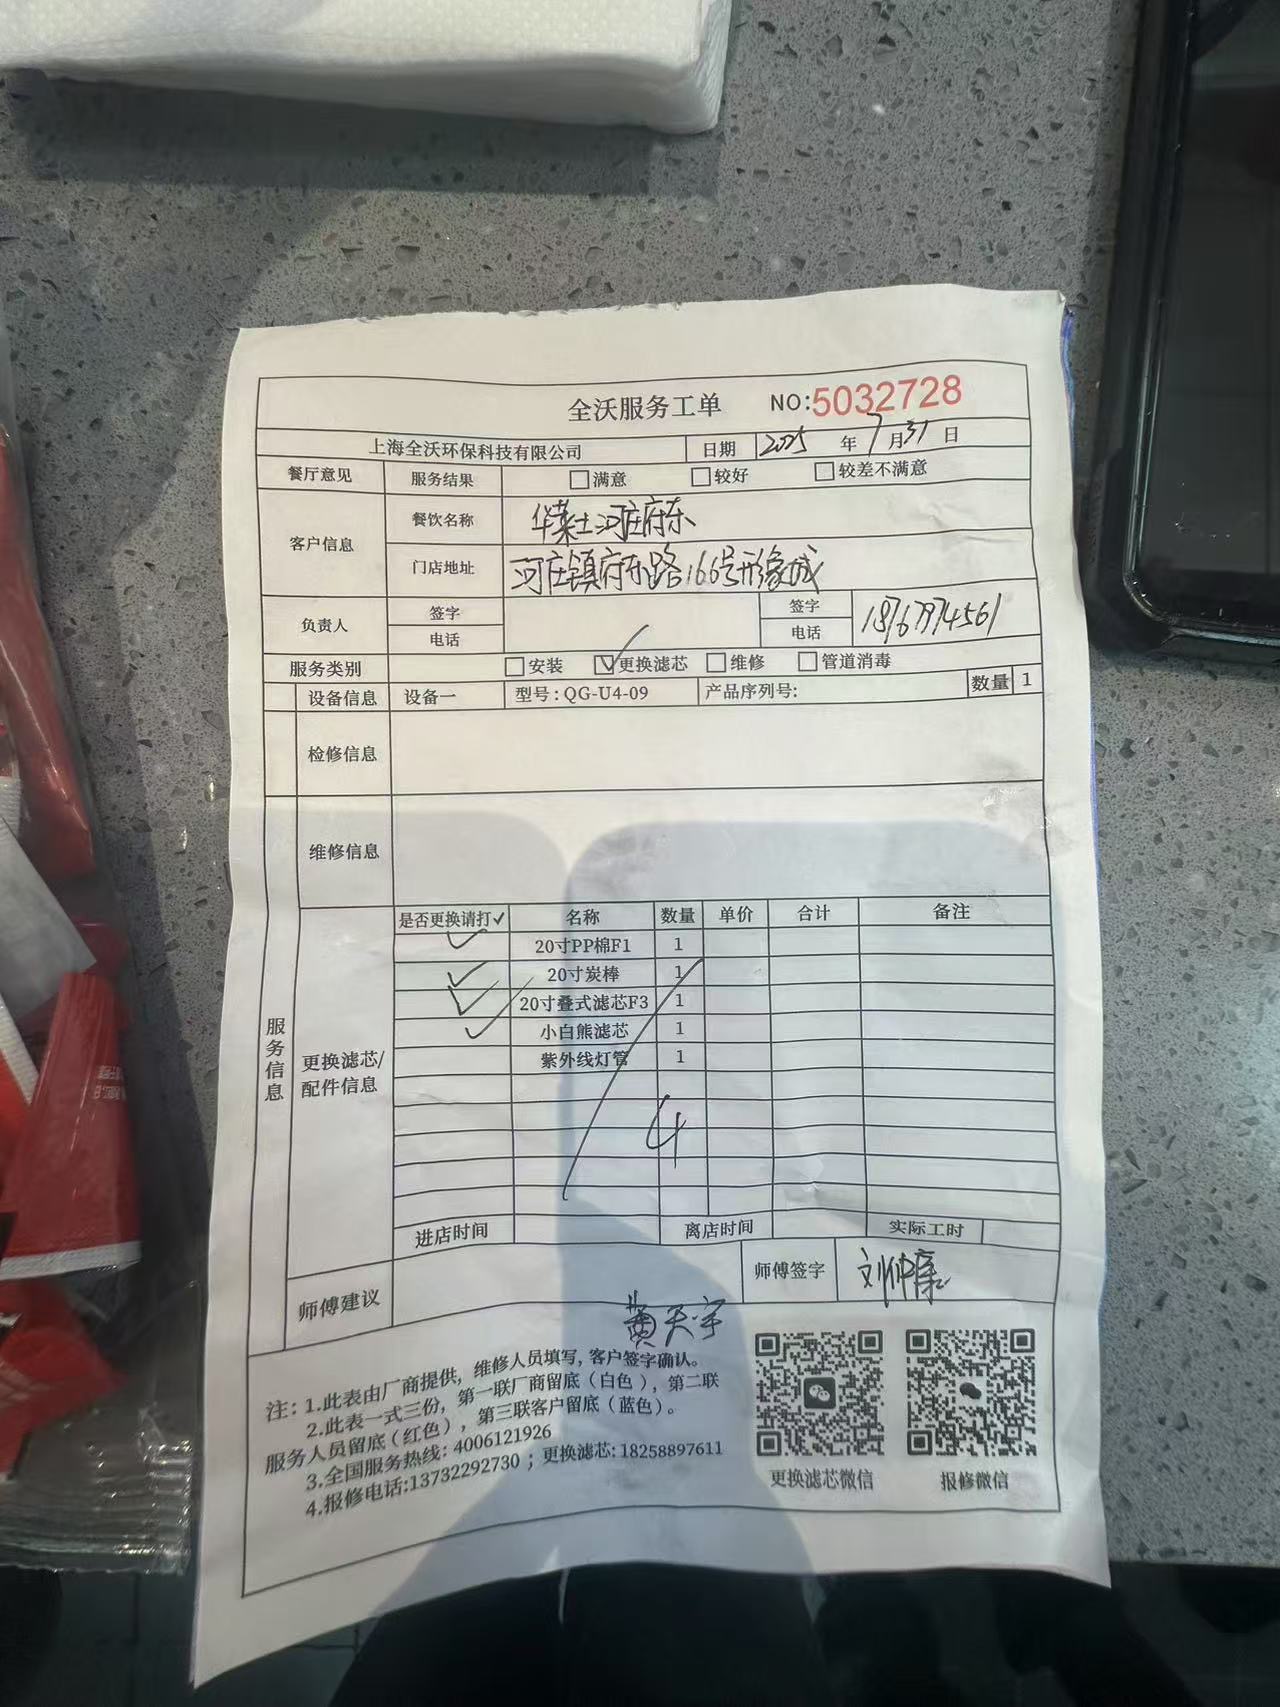 全沃服务工单 NO:5032728
上海全沃环保科技有限公司 日期 2025 年 7 月 31 日
餐厅意见 服务结果 满意 较好 较差不满意
客户信息 餐饮名称 华莱士河庄府东
门店地址 河庄镇府东路166号形象城
负责人 签字 签字
电话 电话 18767974561
服务类别 安装 更换滤芯 维修 管道消毒
设备信息 设备一 型号:QG-U4-09 产品序列号: 数量 1
检修信息
维修信息
服务信息
更换滤芯/
配件信息
是否更换请打✓ 名称 数量 单价 合计 备注
✓ 20寸PP棉F1 1
✓ 20寸炭棒 1
✓ 20寸叠式滤芯F3 1
✓ 小白熊滤芯 1
紫外线灯管 1
4
进店时间 离店时间 实际工时
师傅建议 师傅签字 刘仲康
黄天宇
注:1.此表由厂商提供,维修人员填写,客户签字确认。
2.此表一式三份,第一联厂商留底(白色),第二联
服务人员留底(红色),第三联客户留底(蓝色)。
3.全国服务热线:4006121926
4.报修电话:13732292730;更换滤芯:18258897611
更换滤芯微信 报修微信